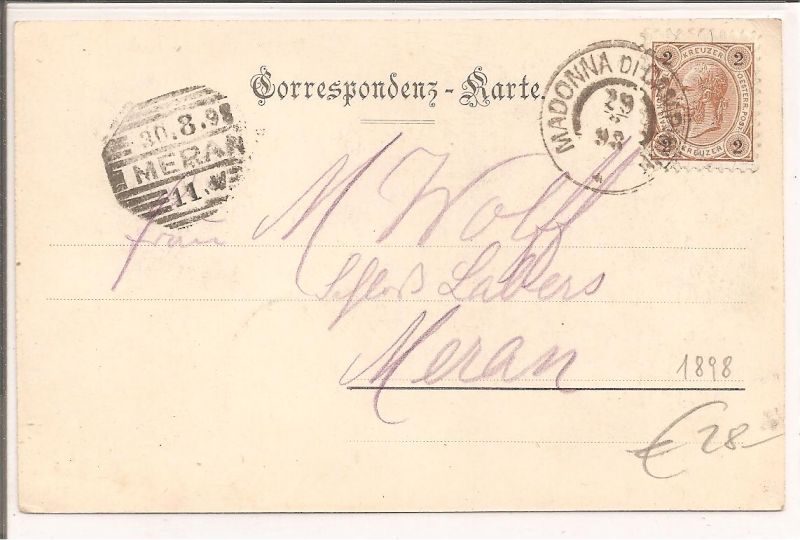 Correspondenz-Karte.
MADONNA DI
29
8
98
2 KREUZER 2
2 KREUZER 2
30.8.98
MERAN
11.V
Frau M Wolff
Schloß Labers
Meran
1898
€ 28-